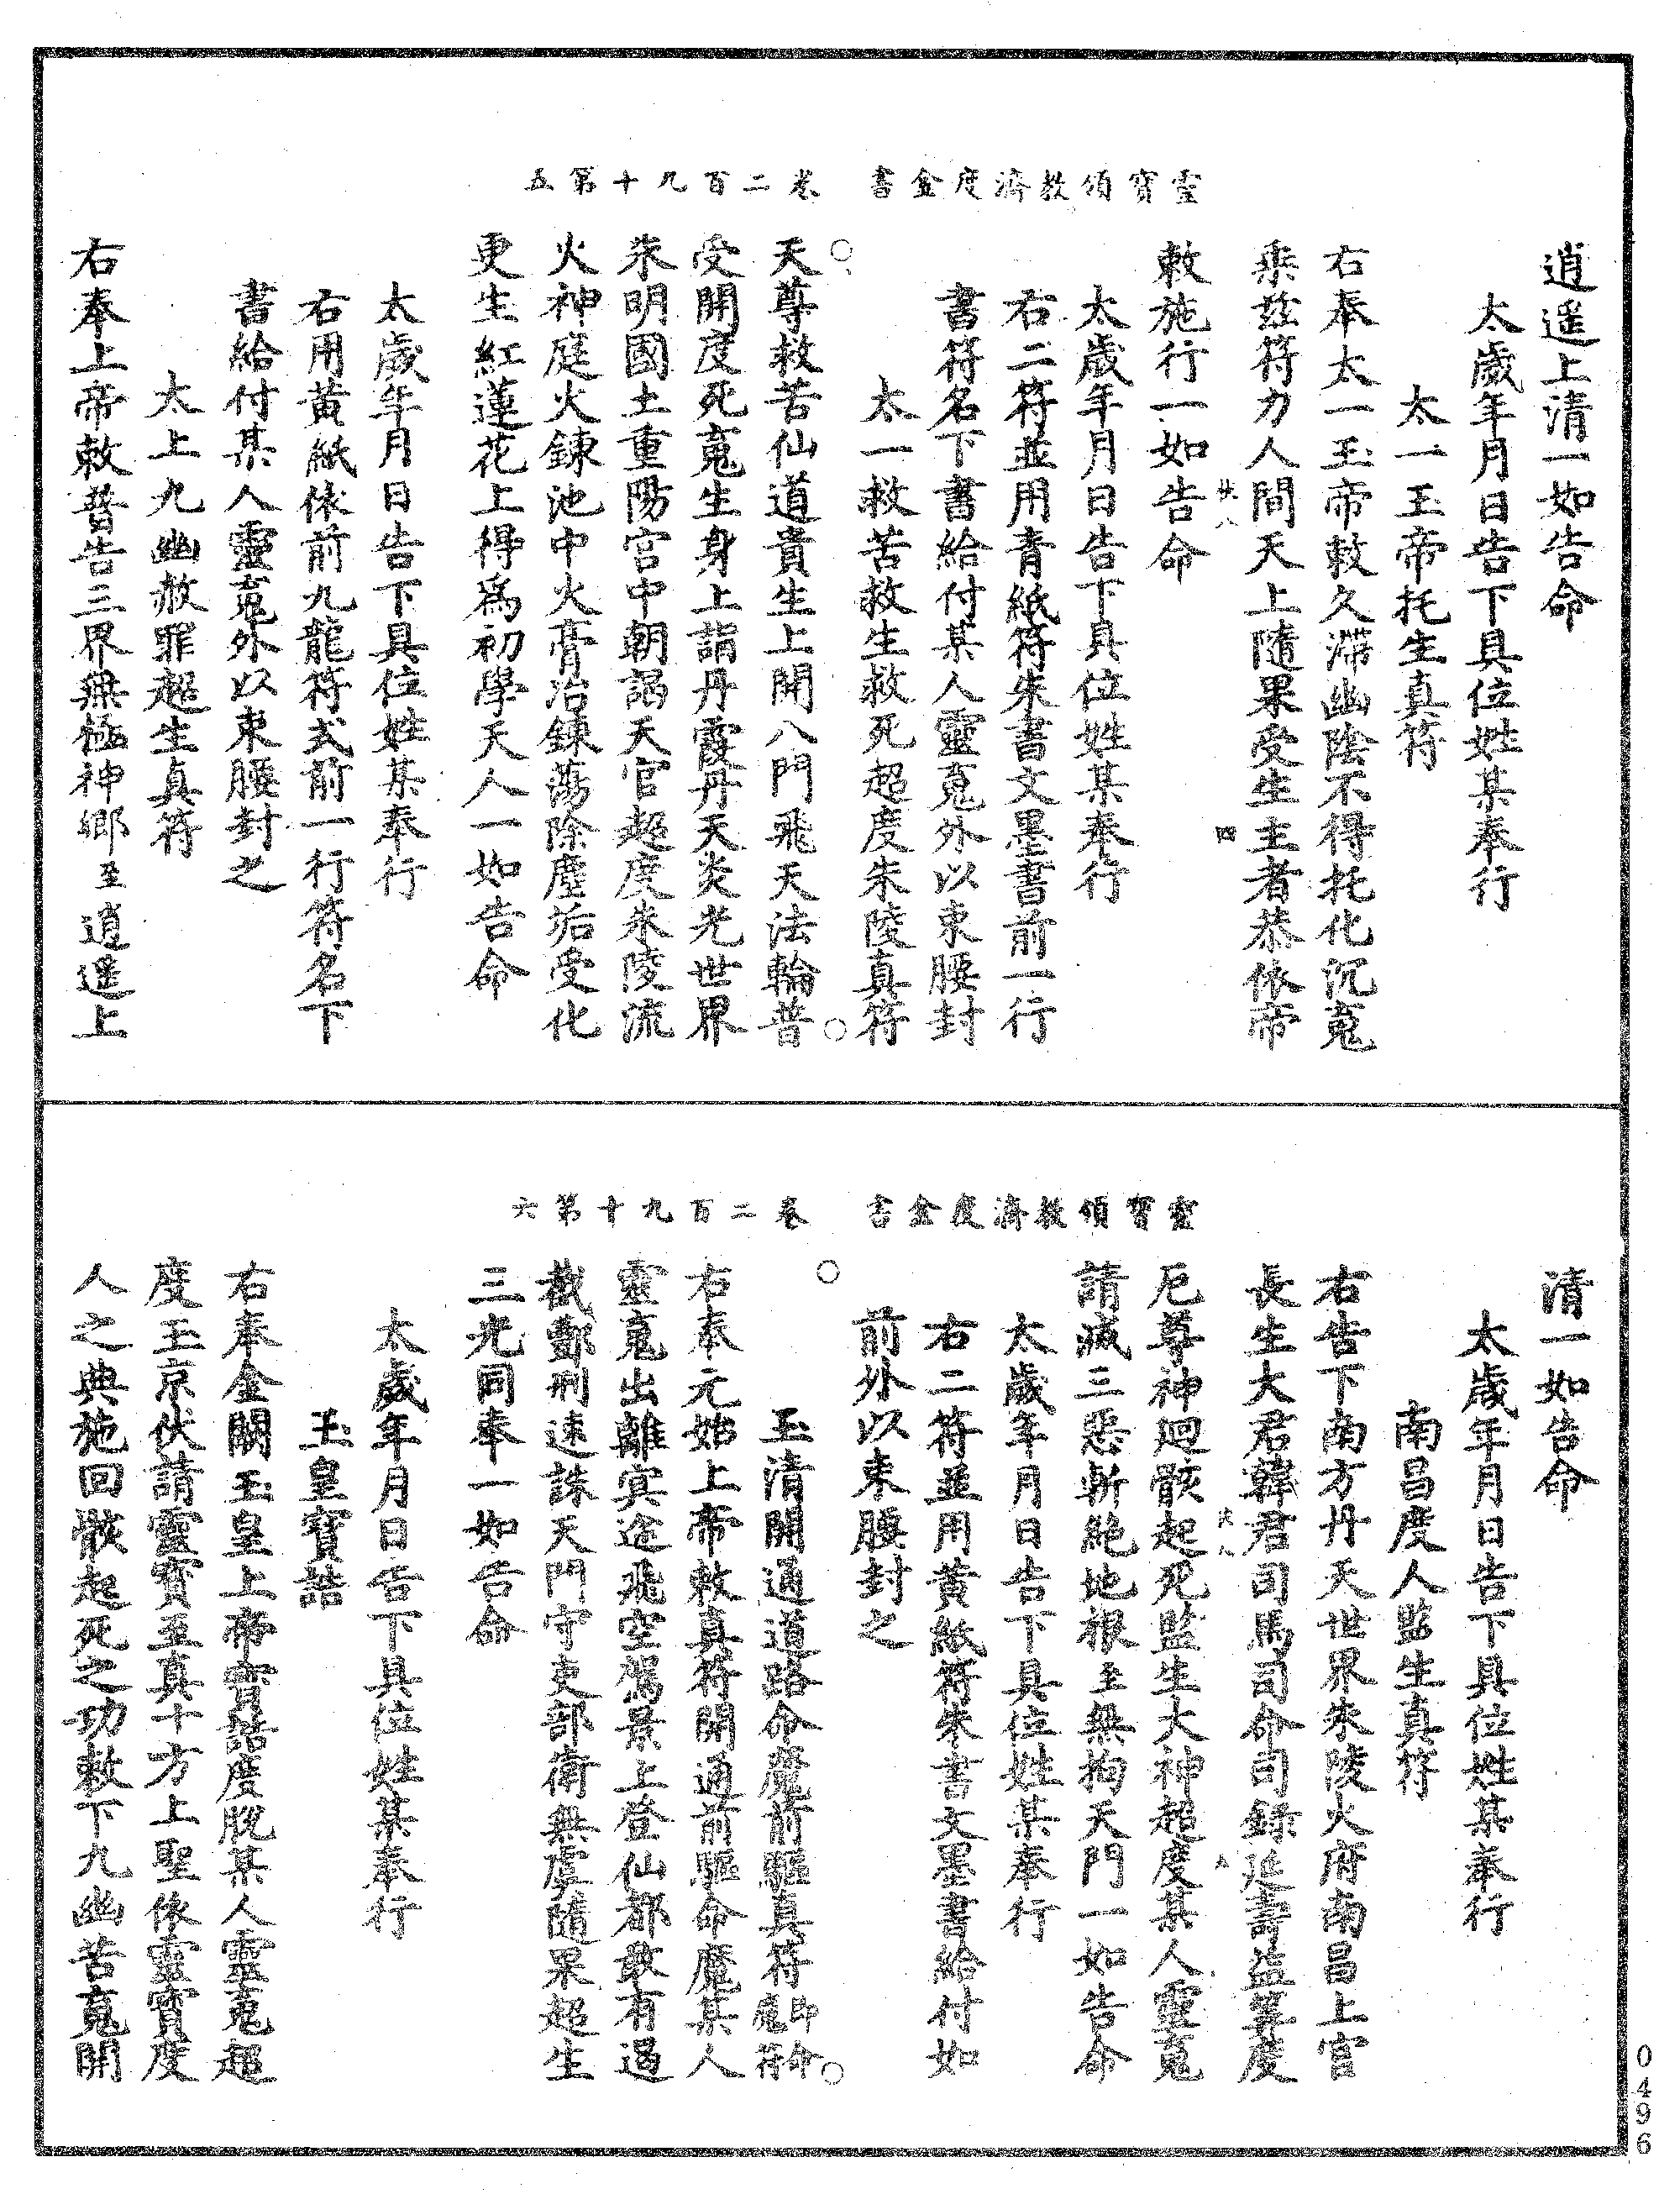 靈寶領教濟度金書　卷二百九十第五
逍遥上清一如告命
太歲年月日告下具位姓某奉行
太一玉帝托生真符
右奉太一玉帝敕久滯幽陰不得托化沉䰟
乘兹符力人間天上隨果受生主者恭依帝
敕施行一如告命
四
太歲年月日告下具位姓某奉行
右二符並用青紙符朱書文墨書前一行
書符名下書給付某人靈䰟外以束腰封
太一救苦救生救死超度朱陵真符
天尊救苦仙道貴生上開八門飛天法輪普
受開度死䰟生身上詣丹霞丹天炎光世界
朱明國土重陽宫中朝謁天官超度朱陵流
火神庭火鍊池中火膏冶鍊蕩除塵垢受化
更生紅蓮花上得爲初學天人一如告命
太歲年月日告下具位姓某奉行
右用黃紙依前九龍符式前一行符名下
書給付某人靈䰟外以束腰封之
太上九幽赦罪超生真符
右奉上帝敕普告三界無極神鄉至逍遥上
靈寶領教濟度金書　卷二百九十第六
清一如告命
太歲年月日告下具位姓某奉行
南昌度人監生真符
右告下南方丹天世界朱陵火府南昌上官
長生大君韓君司馬司命司録延壽益筭度
厄尊神廻骸起死監生大神超度某人靈䰟
請滅三惡斬絶地根至無拘天門一如告命
太歲年月日告下具位姓某奉行
右二符並用黃紙符朱書文墨書給付如
前外以束腰封之
玉清開通道路命魔前驅真符即命魔符
右奉元始上帝敕真符開通前驅命魔某人
靈䰟出離冥途飛空駕景上登仙都敢有遏
截酆刑速誅天門守吏部衛無虞隨果超生
三光同奉一如告命
太歲年月日告下具位姓某奉行
玉皇寶誥
右奉金闕玉皇上帝寶誥度脫某人靈䰟超
度玉京伏請靈寶至真十方上聖依靈寶度
人之典施回骸起死之功敕下九幽苦䰟開
0496